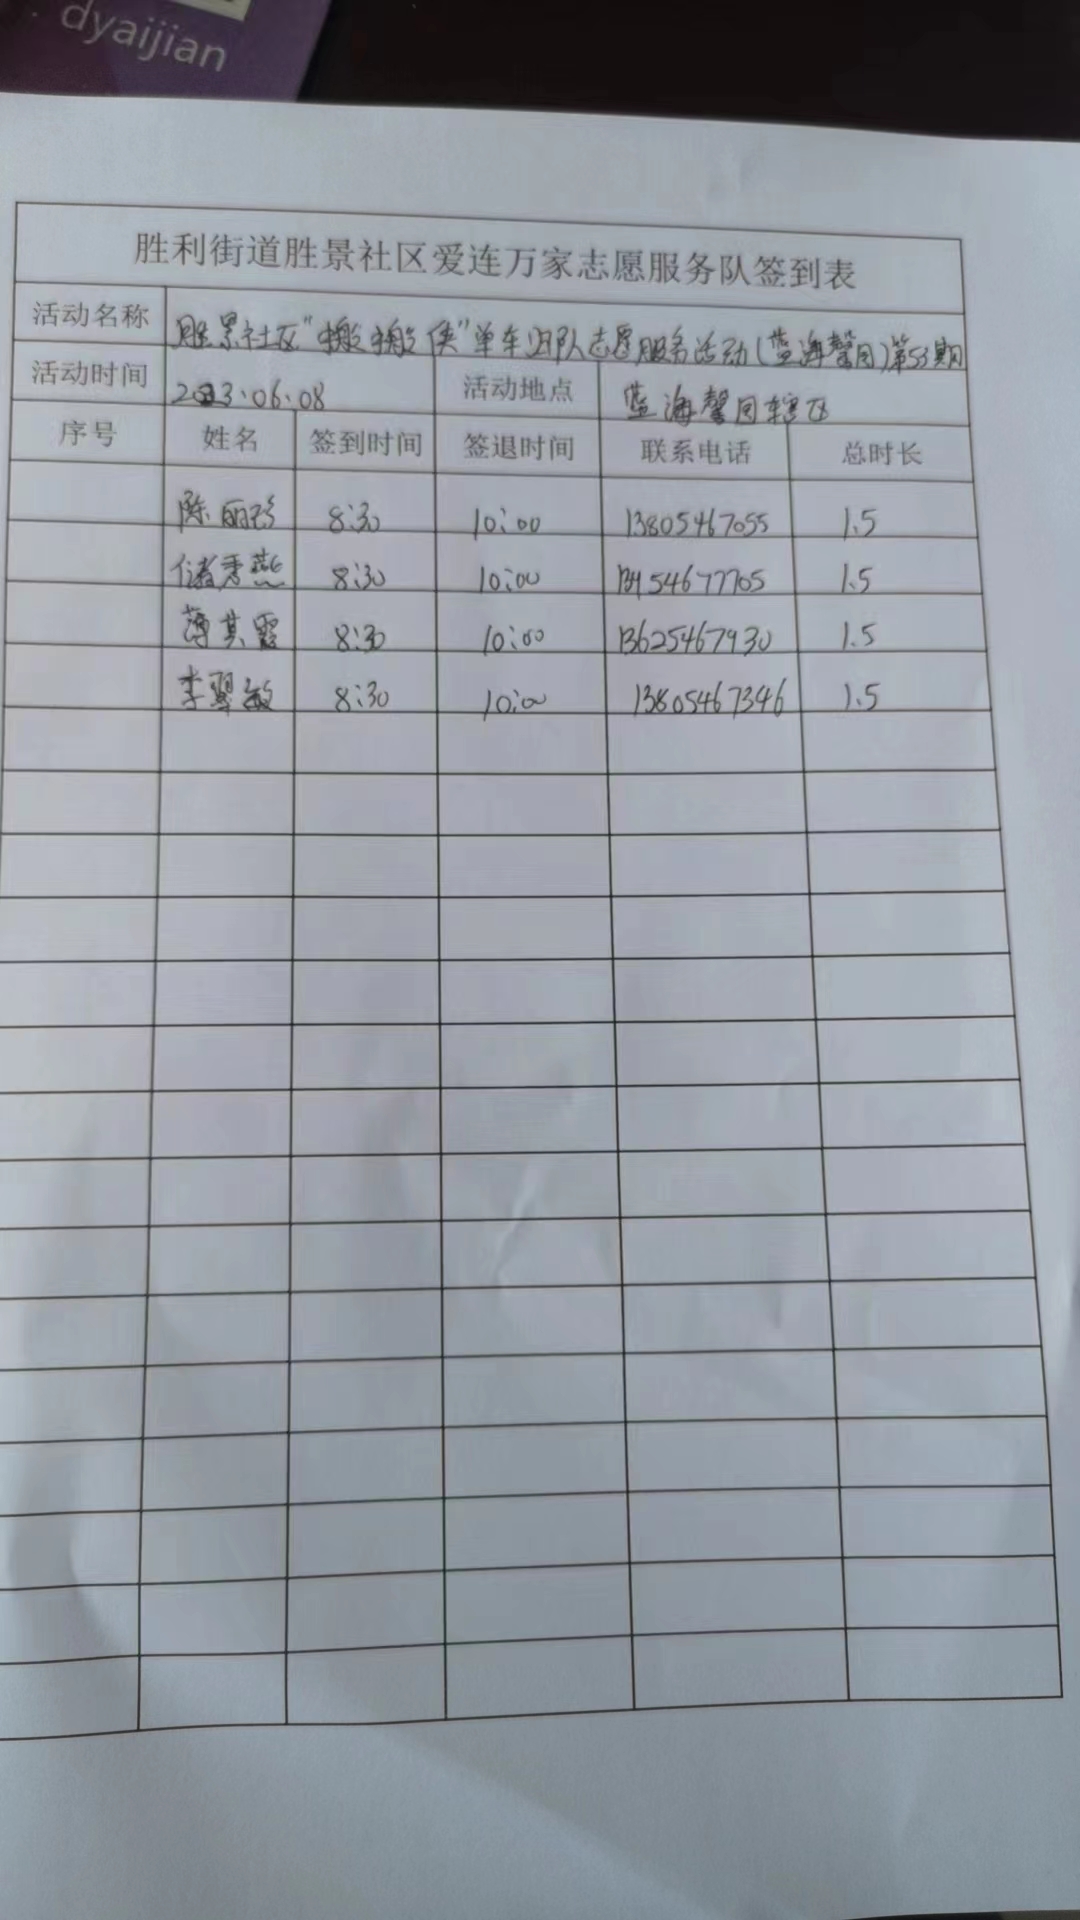 dyaijian
胜利街道胜景社区爱连万家志愿服务队签到表
活动名称 胜景社区"搬搬侠"单车团队志愿服务活动(蓝海馨园)第53期
活动时间 2023.06.08 活动地点 蓝海馨园辖区
序号 姓名 签到时间 签退时间 联系电话 总时长
陈丽珍 8:30 10:00 13805467055 1.5
储秀燕 8:30 10:00 54677705 1.5
薄其霞 8:30 10:00 13625467930 1.5
李翠敏 8:30 10:00 13805467346 1.5